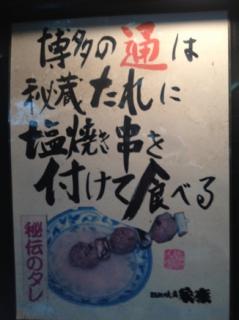 博多の通は
秘蔵たれに
塩焼き串を
付けて食べる
秘伝のタレ